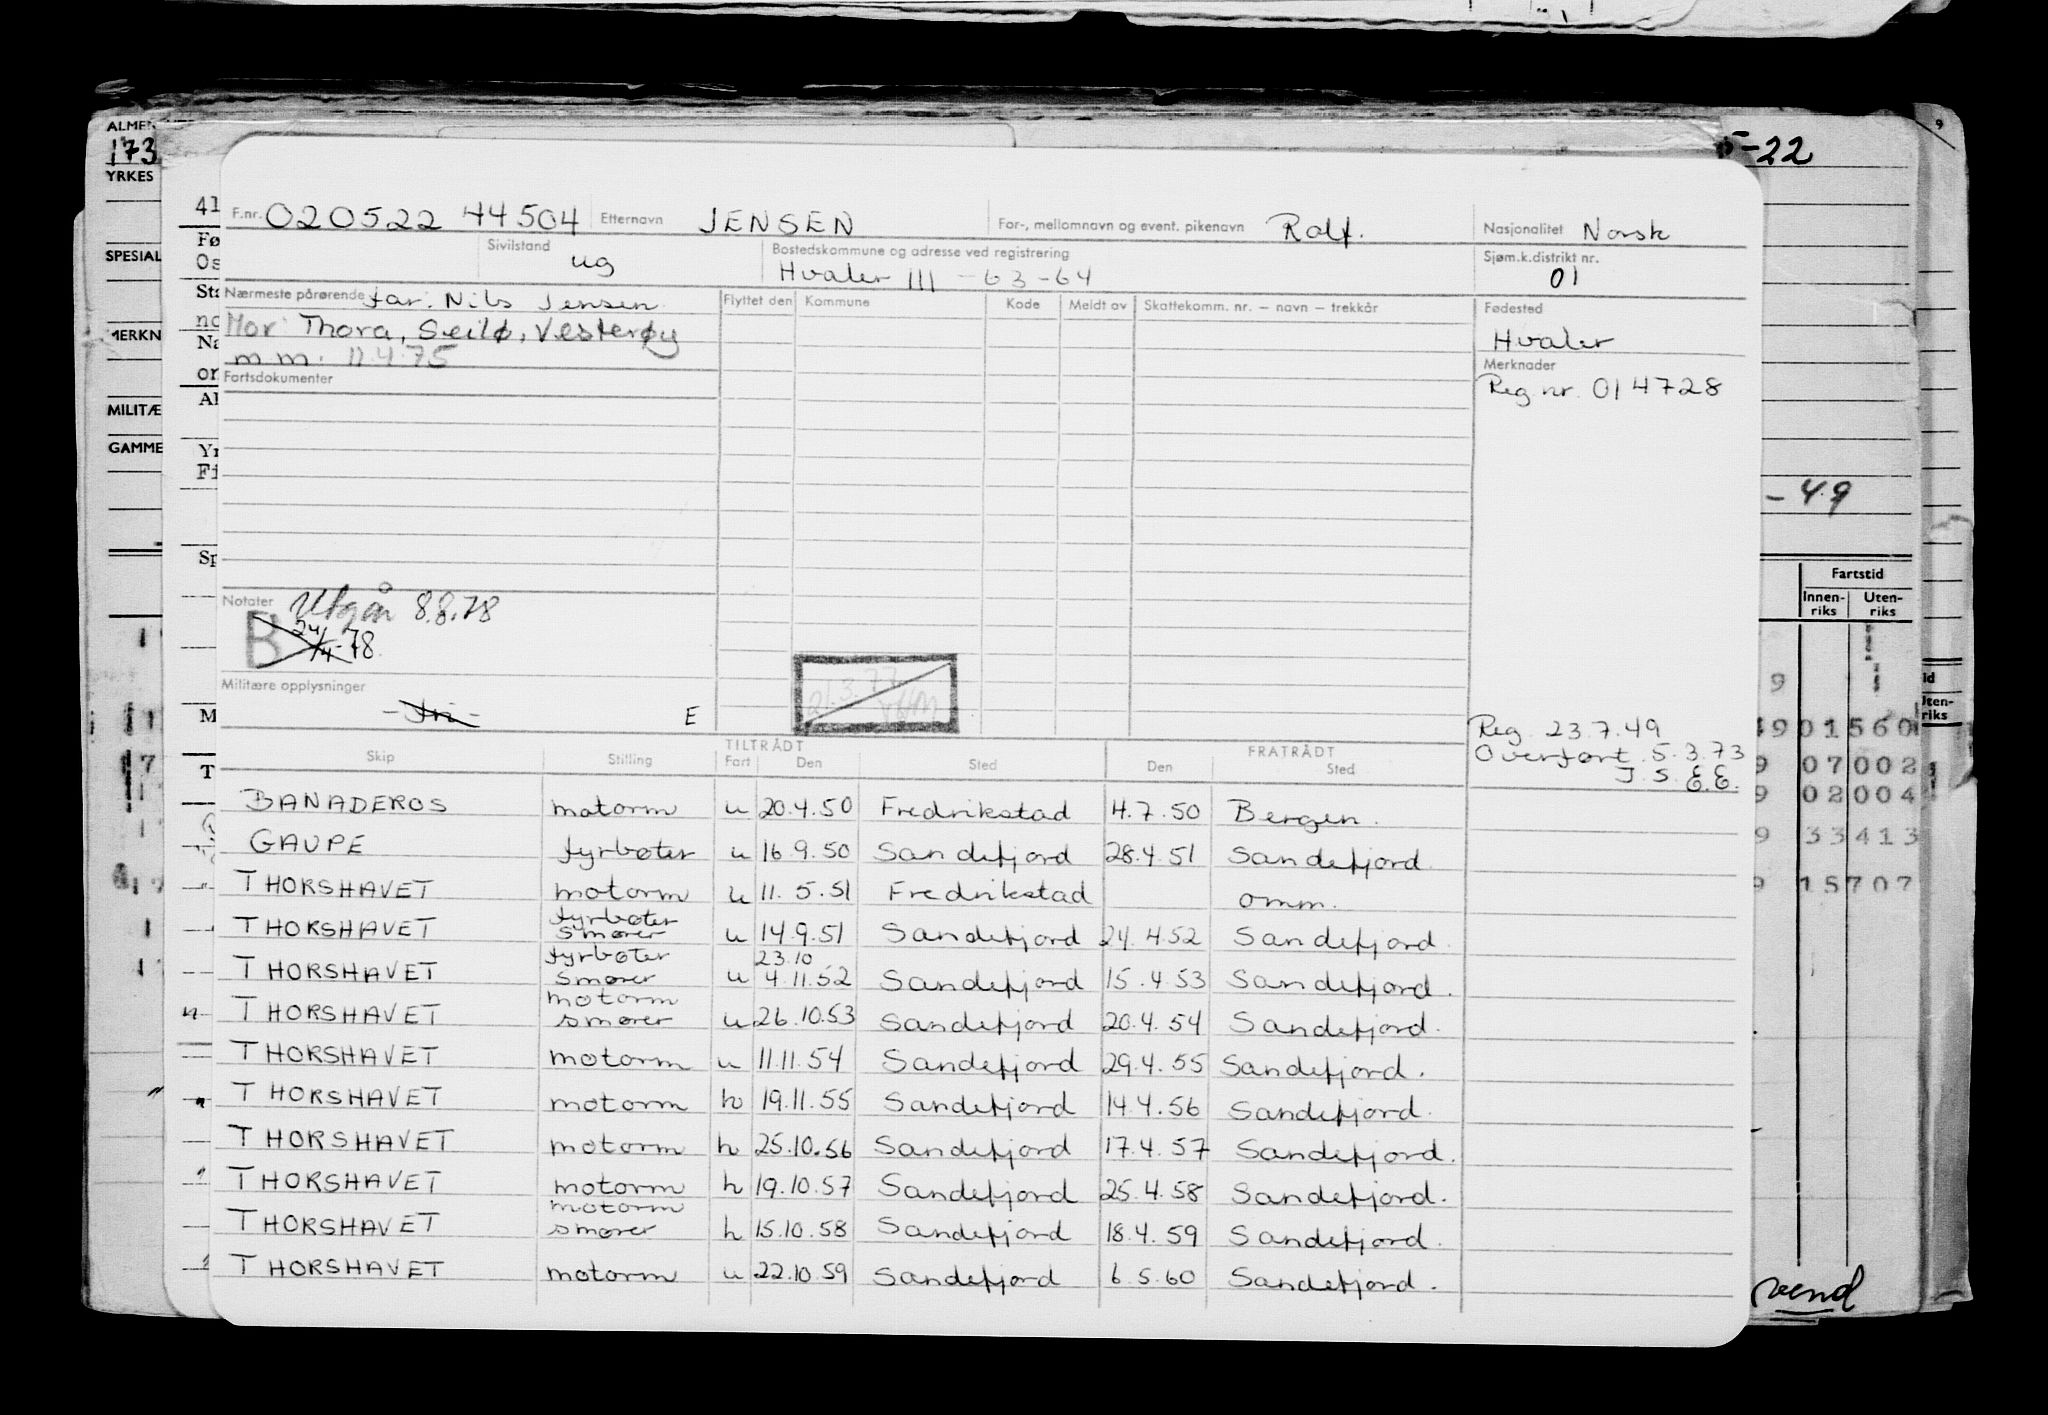 ALMEN
173
YRKES
SPESIAL
MERKN
MILITÆ
GAMME
5-22
9
41
Fø
Os
Sta
no
Na
on
Yr
Fi
Sp
M
T
F.nr. 020522 44504 Etternavn JENSEN For-, mellomnavn og event. pikenavn Rolf. Nasjonalitet Norsk
Sivilstand ug Bostedskommune og adresse ved registrering Hvaler III - 63-64 Sjøm.k.distrikt nr. 01
Nærmeste pårørende far: Nils Jensen Flyttet den Kommune Kode Meldt av Skattekomm. nr. – navn – trekkår Fødested
Mor Thora, Seilø, Vesterøy Hvaler
m.m. 11.4.75 Merknader
Fartsdokumenter Reg nr. 014728
- 49
Fartstid
Innen-riks Uten-riks
Notater Utgår 8.8.78
B 24/4-78
Militære opplysninger
E
21.3.77
Reg. 23.7.49
Overført 5.3.73
J.S. E.E.
TILTRÅDT FRATRÅDT
Skip Stilling Fart Den Sted Den Sted
BANADEROS motorm u 20.4.50 Fredrikstad 4.7.50 Bergen.
GAUPE fyrbøter u 16.9.50 Sandefjord 28.4.51 Sandefjord.
THORSHAVET motorm u 11.5.51 Fredrikstad omm.
THORSHAVET fyrbøter smører u 14.9.51 Sandefjord 24.4.52 Sandefjord.
THORSHAVET fyrbøter smører u 23.10 4.11.52 Sandefjord 15.4.53 Sandefjord.
THORSHAVET motorm smører u 26.10.53 Sandefjord 20.4.54 Sandefjord.
THORSHAVET motorm u 11.11.54 Sandefjord 29.4.55 Sandefjord.
THORSHAVET motorm h 19.11.55 Sandefjord 14.4.56 Sandefjord.
THORSHAVET motorm h 25.10.56 Sandefjord 17.4.57 Sandefjord.
THORSHAVET motorm h 19.10.57 Sandefjord 25.4.58 Sandefjord.
THORSHAVET motorm smører h 15.10.58 Sandefjord 18.4.59 Sandefjord.
THORSHAVET motorm u 22.10.59 Sandefjord 6.5.60 Sandefjord.
9
49 01 560
9 07 002
9 02 004
9 33 413
9 15 707
vend